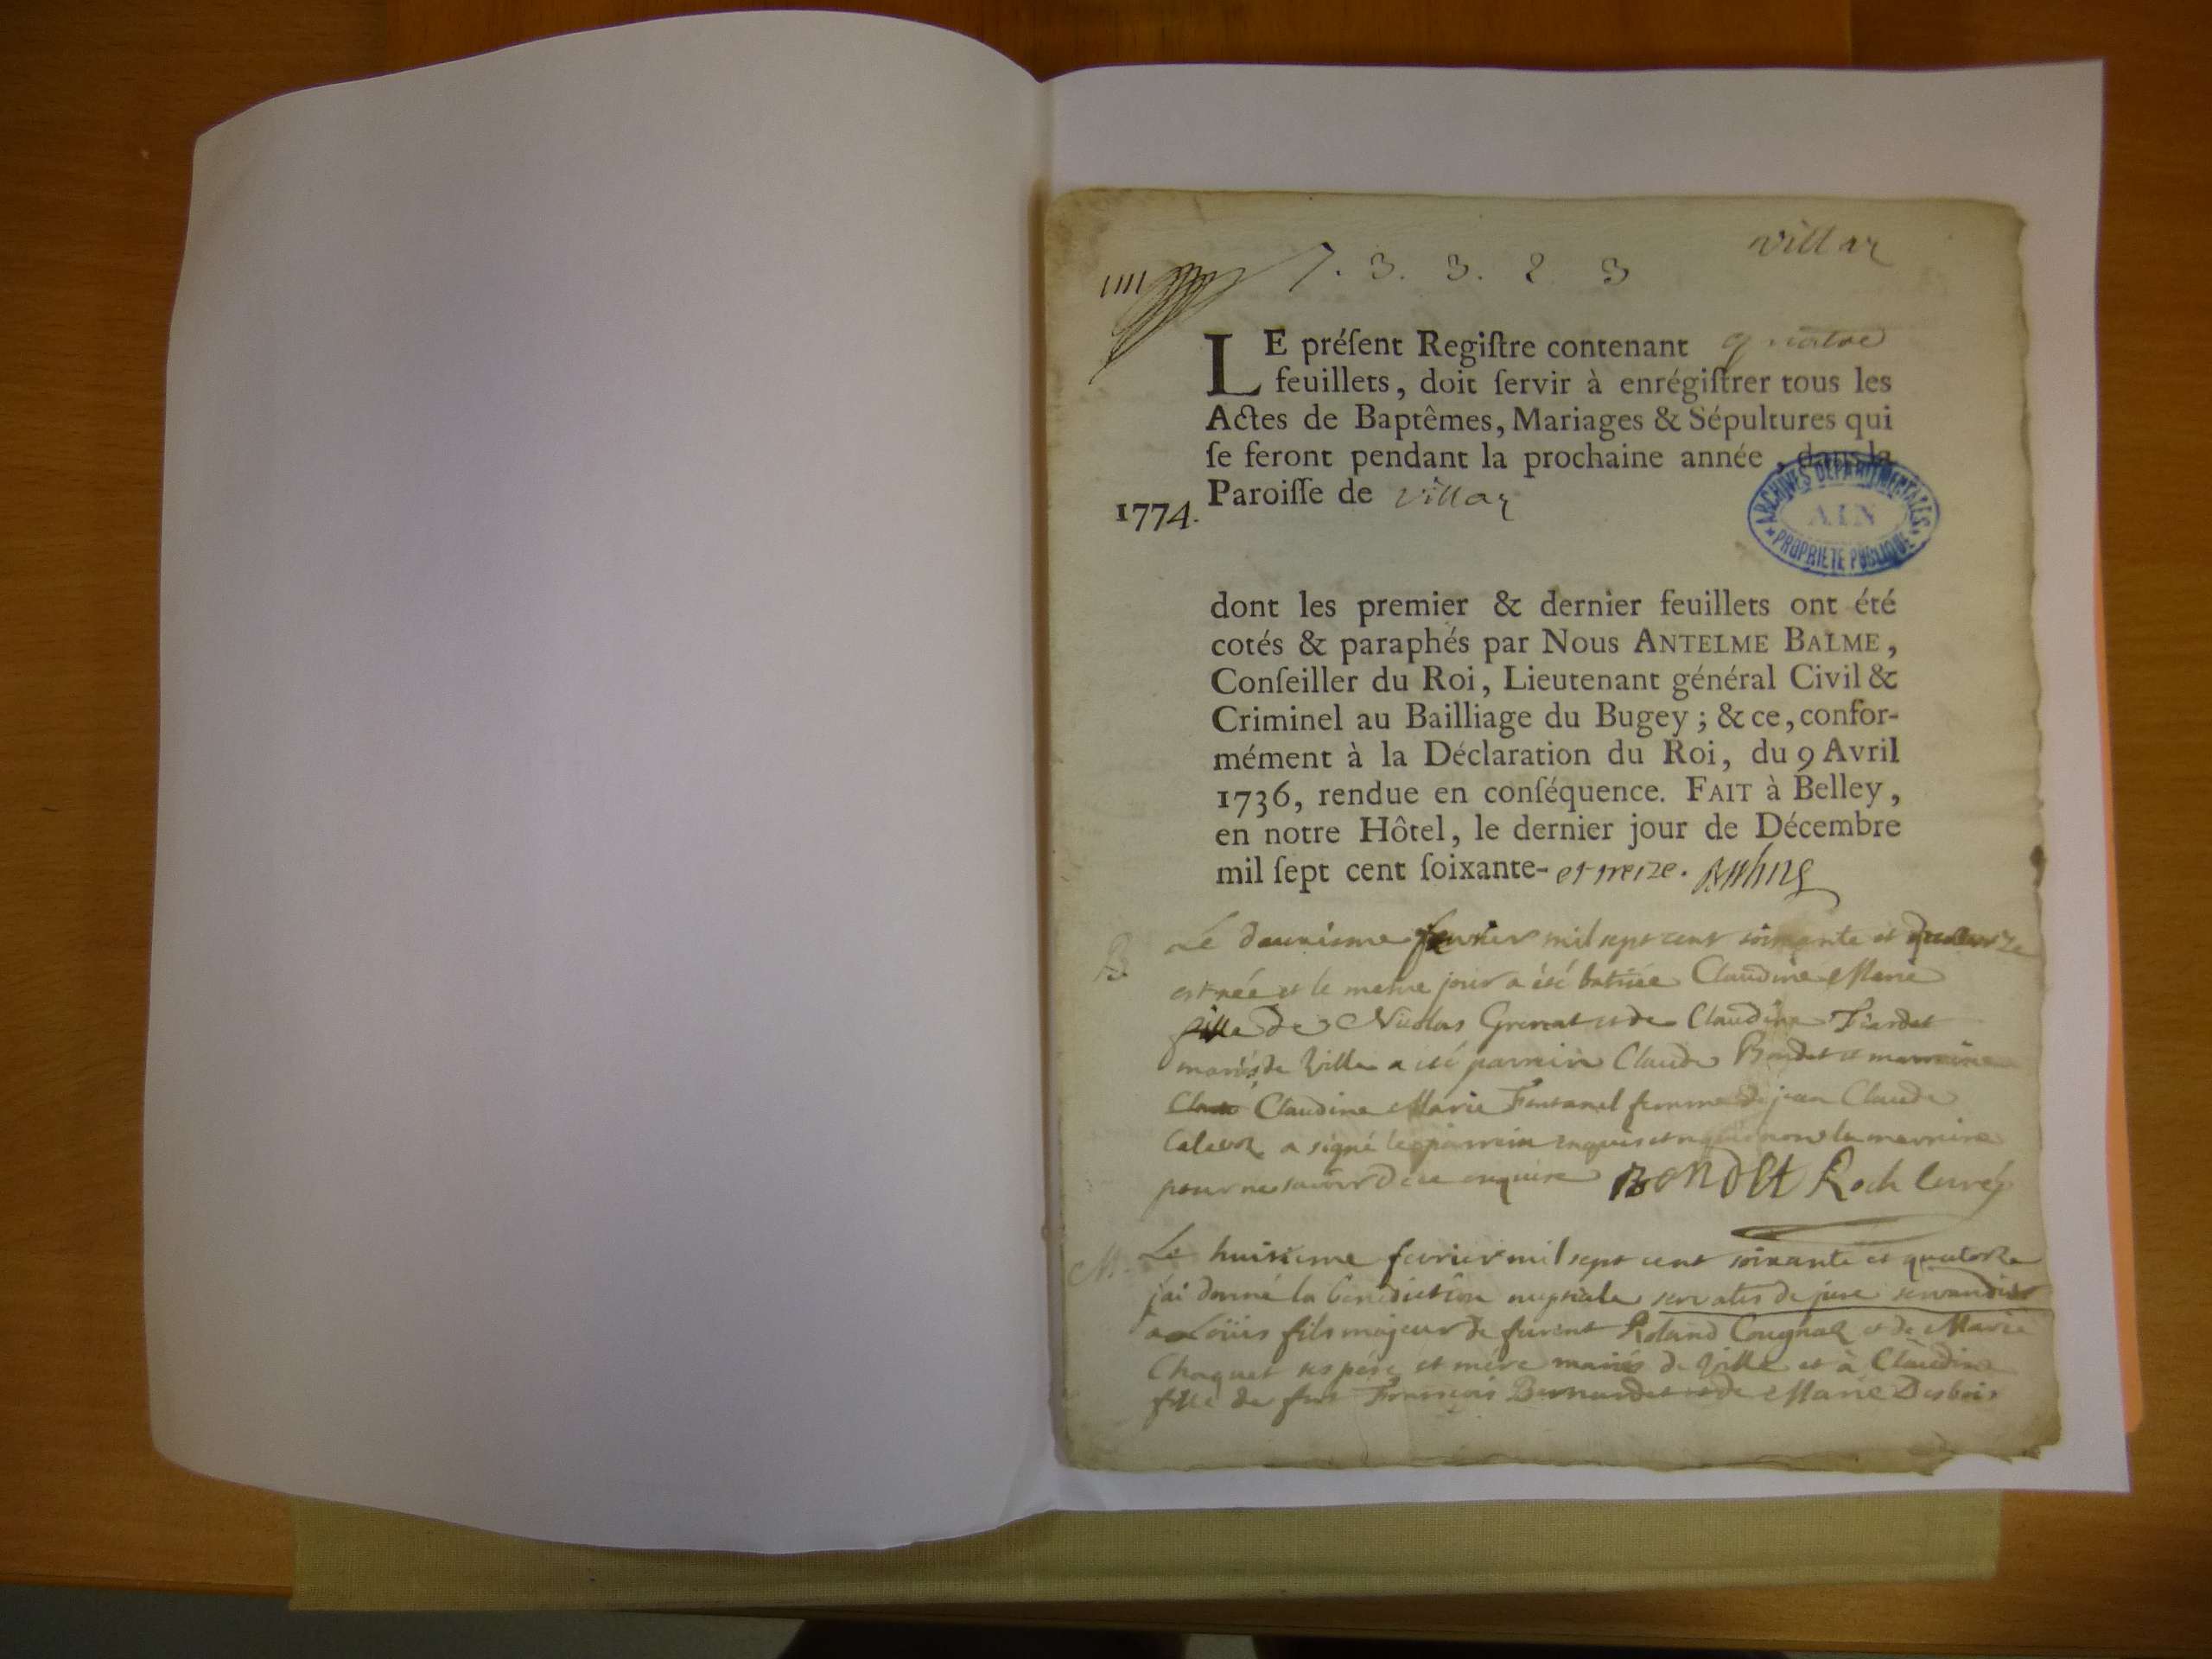 villar
1111 7. 3. 3. 2 3
LE préſent Regiſtre contenant quatre
feuillets, doit ſervir à enrégiſtrer tous les
Actes de Baptêmes, Mariages & Sépultures qui
ſe feront pendant la prochaine année, dans la
Paroiſſe de villar
1774.
ARCHIVES DEPARTEMENTALES
AIN
PROPRIETE PUBLIQUE
dont les premier & dernier feuillets ont été
cotés & paraphés par Nous ANTELME BALME,
Conſeiller du Roi, Lieutenant général Civil &
Criminel au Bailliage du Bugey; & ce, confor-
mément à la Déclaration du Roi, du 9 Avril
1736, rendue en conſéquence. FAIT à Belley,
en notre Hôtel, le dernier jour de Décembre
mil ſept cent ſoixante- et treize.
B Le deuxieme fevrier mil sept cent soixante et quatorze
est née et le meme jour a été batisée Claudine Marie
fille de Nicolas Grenat et de Claudine
mariés de Ville a été parrein Claude Bondet et marreine
Claudine Marie femme de jean Claude
a signé le parrein et non la marreine
pour ne savoir de ce enquise BONDET Roch Curé
M. Le huitieme fevrier mil sept cent soixante et quatorze
j'ai donné la benediction nuptiale servatis de jure servandis
a Loüis fils majeur de furent Roland Cougnaz et de Marie
Chaquet ses pére et mére mariés de Ville et à Claudine
fille de feu François Bernardet et de Marie Desbois